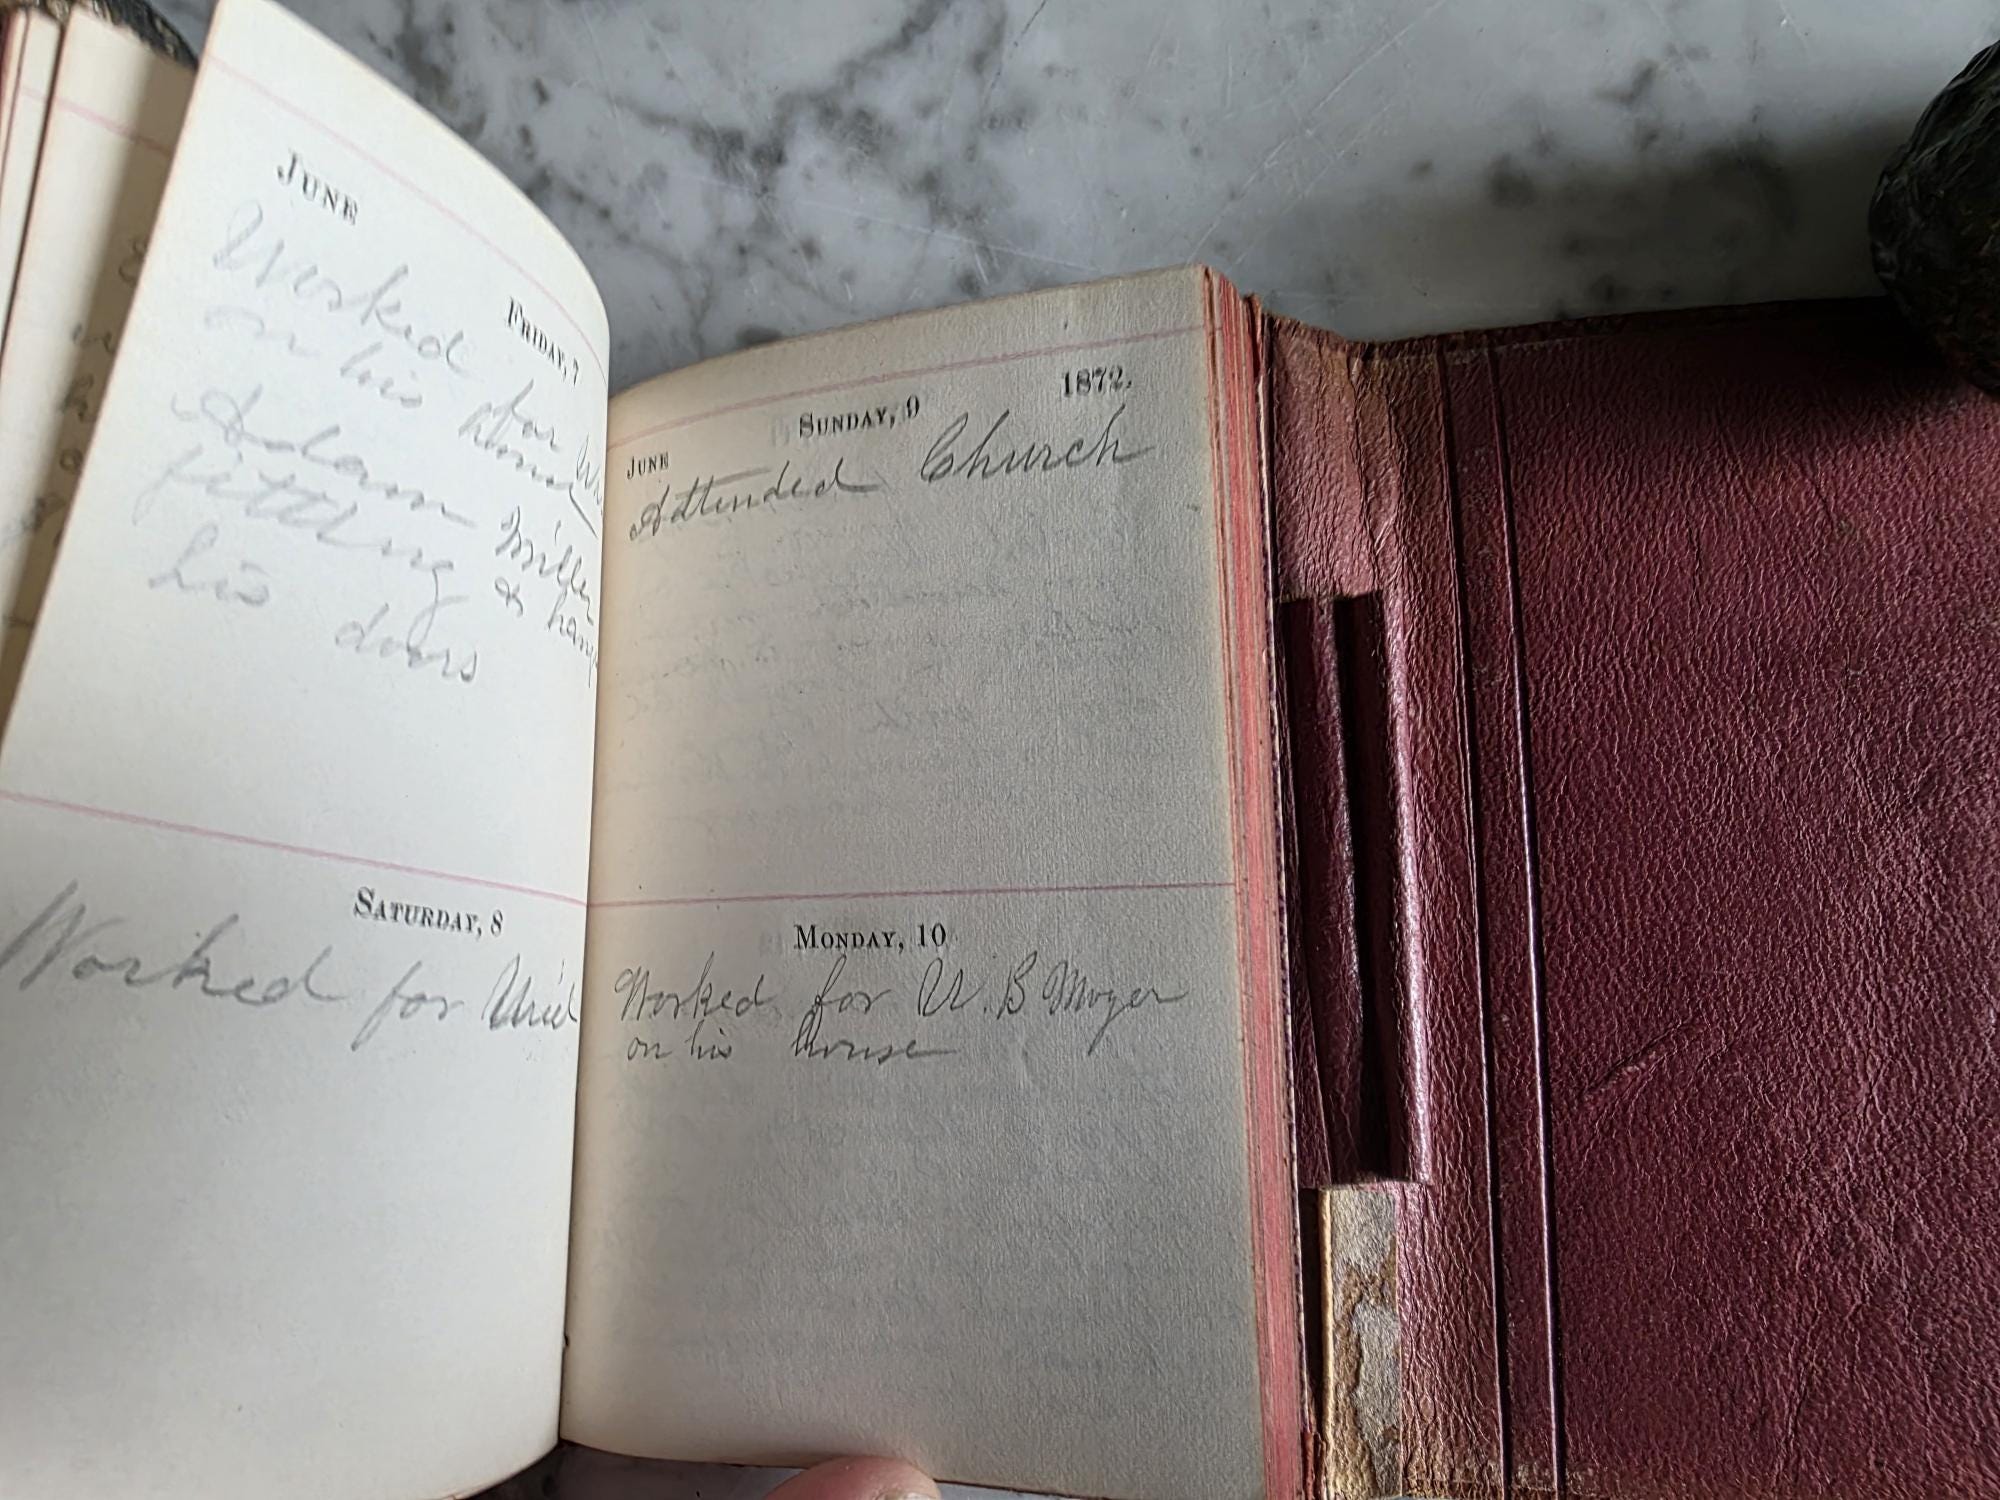 JUNE
FRIDAY, 7
Worked for
on his house
Adam Miller
fitting & hang
his doors
SATURDAY, 8
Worked for
1872.
SUNDAY, 9
JUNE
Attended Church
MONDAY, 10
Worked for U. B Moyer
on his house